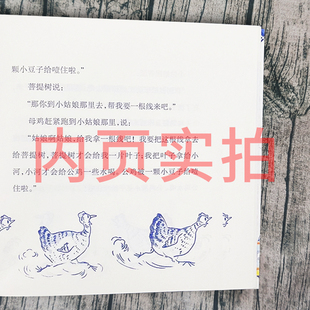 颗小豆子给噎住啦。”
菩提树说：
“那你到小姑娘那里去，帮我要一根线来吧。”
母鸡赶紧跑到小姑娘那里，说：
“姑娘啊姑娘，给我拿一根线吧！我要把这根线拿去
给菩提树，菩提树才会给我一片叶子；我把叶子拿给小
河，小河才会给公鸡一些水喝，公鸡被一颗小豆子给噎
住啦。”
内页实拍